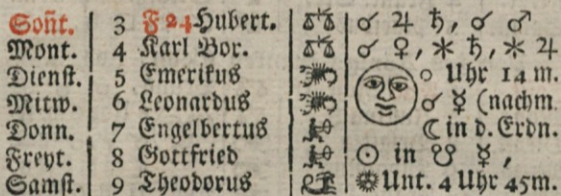 Soñt. 3 F 24 Hubert. ♎ ☌ ♃ ♄, ☌ ♂
Mont. 4 Karl Bor. ♎ ☌ ♀, ⚹ ♄, ⚹ ♃
Dienſt. 5 Emerikus ♏ 0 Uhr 14 m.
Mitw. 6 Leonardus ♏ ☌ ☿ (nachm
Donn. 7 Engelbertus ♐ ☾ in d. Erdn.
Freyt. 8 Gottfried ♐ ☉ in ☋ ☿,
Samſt. 9 Theodorus ♑ Unt. 4 Uhr 45m.